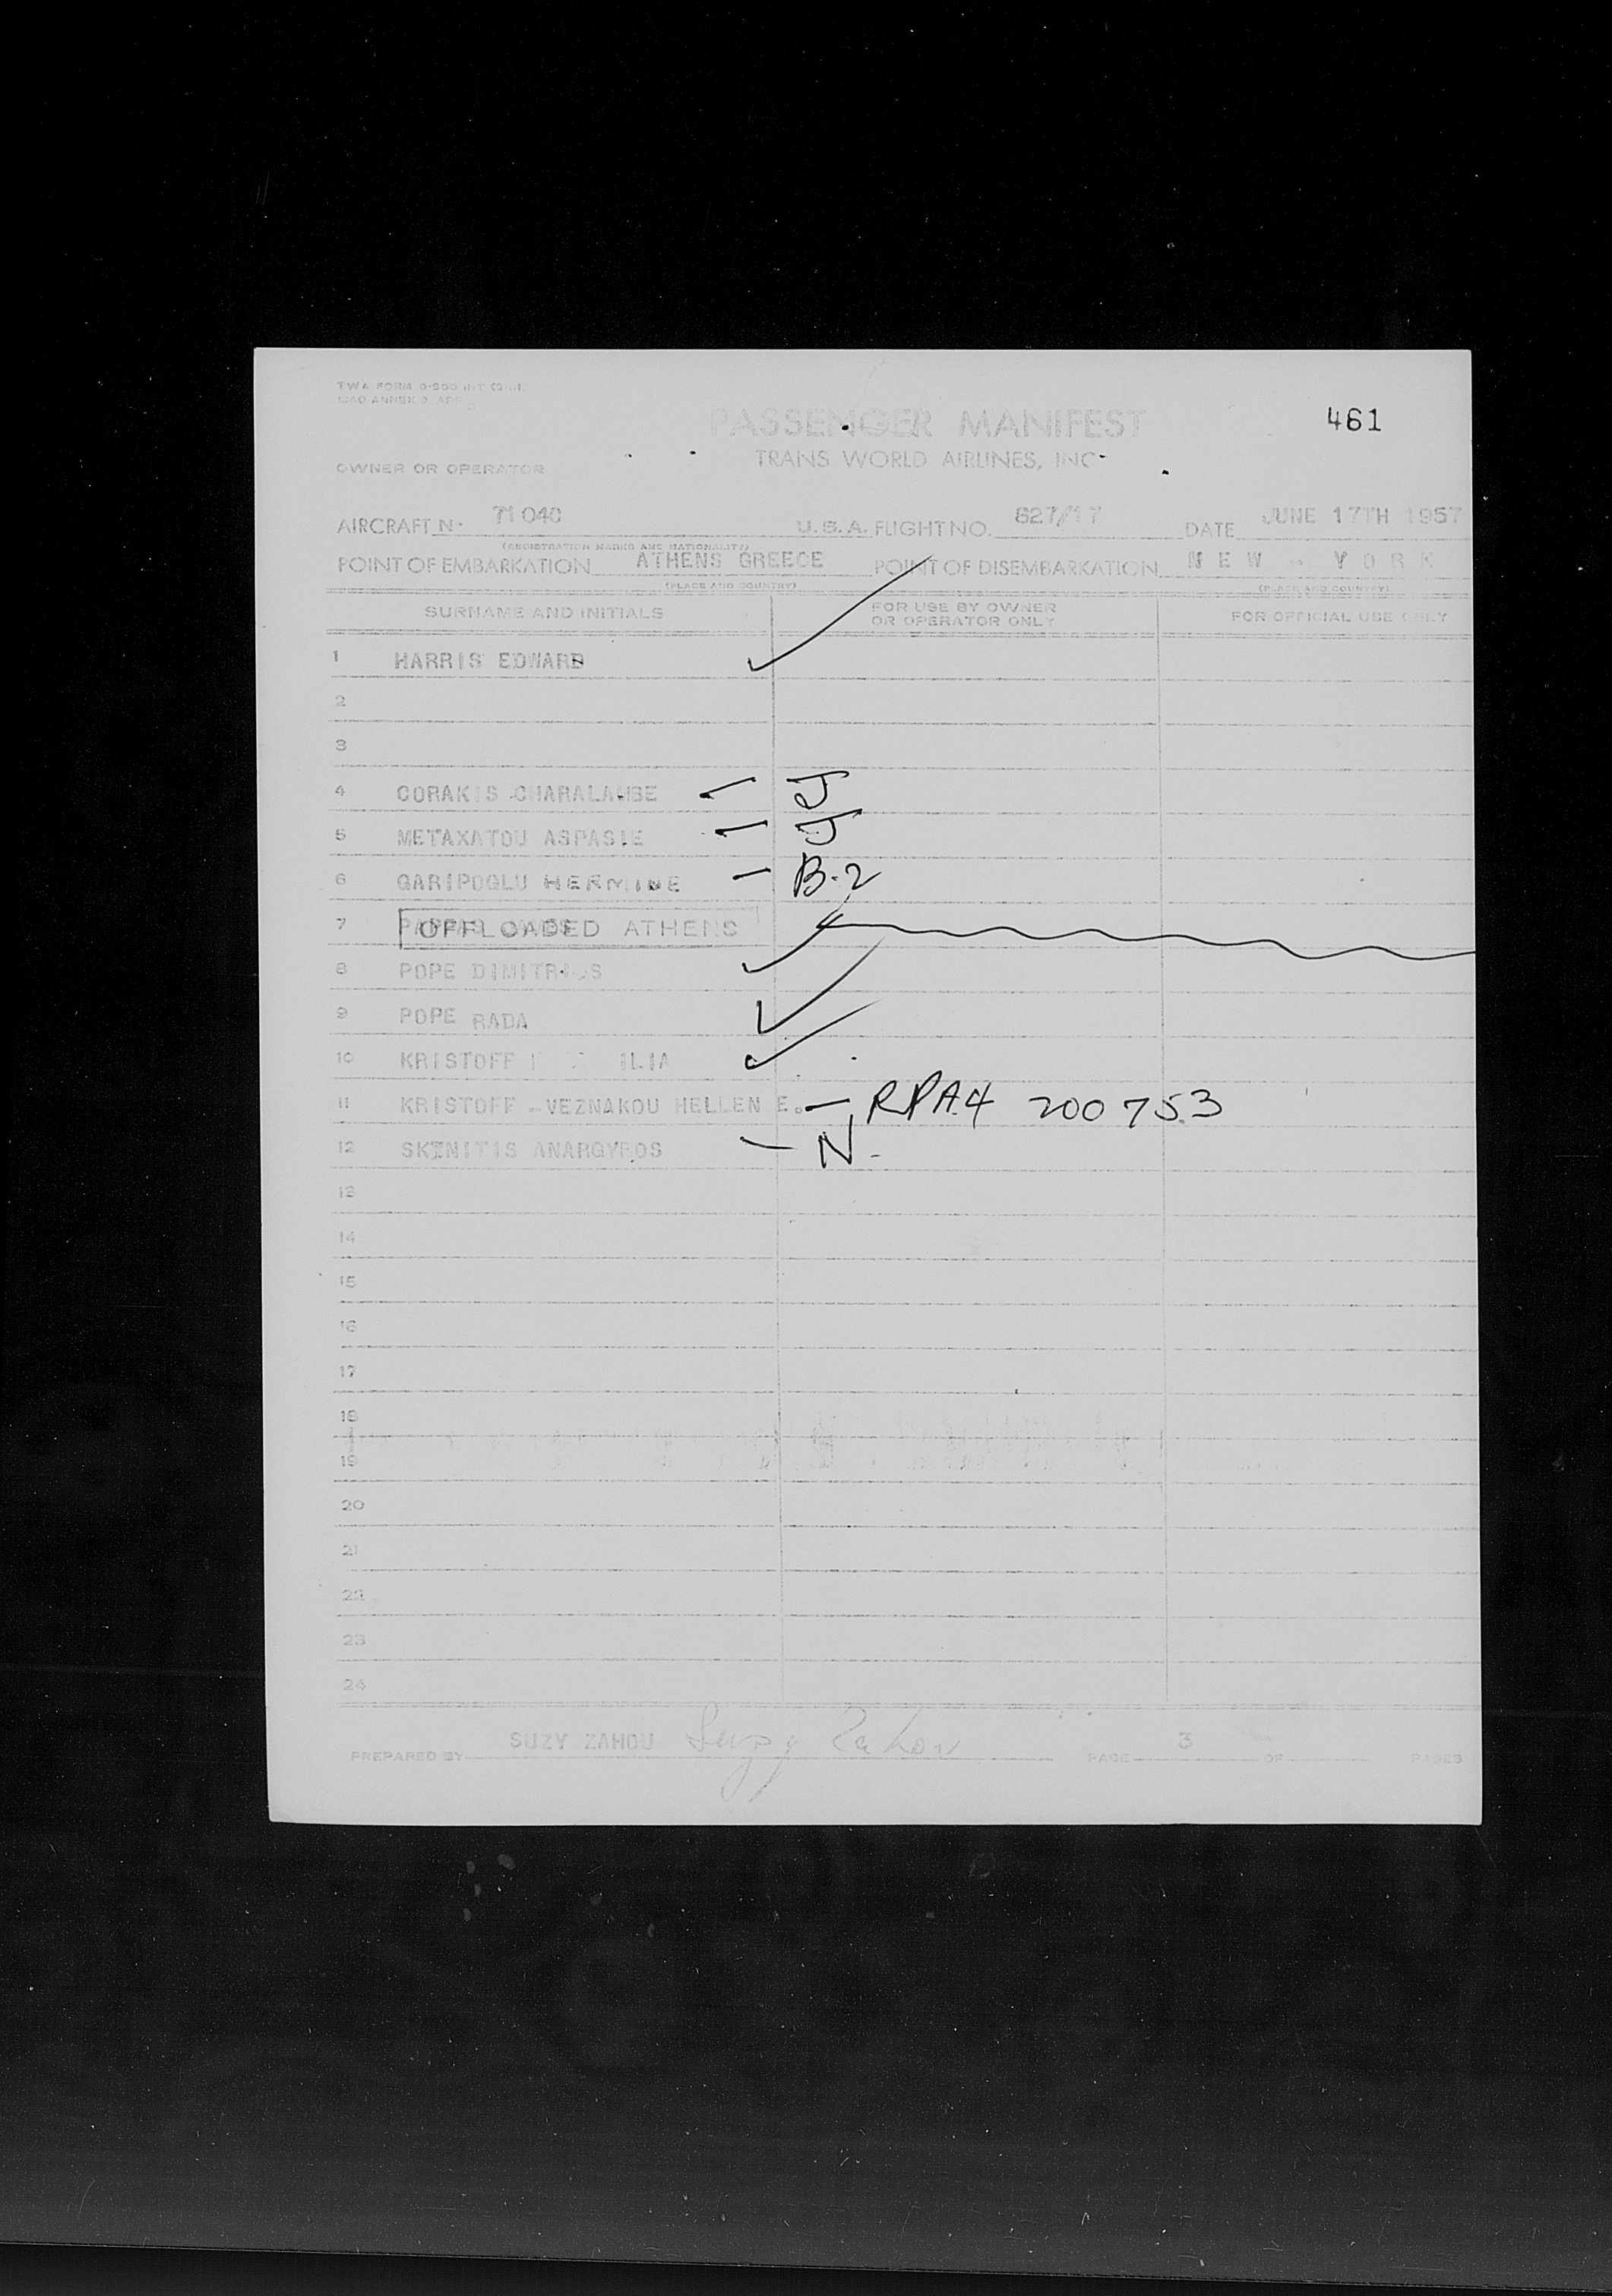 TWA FORM
PASSENGER MANIFEST
461
TRANS WORLD AIRLINES, INC
OWNER OR OPERATOR
AIRCRAFT N. 71040 U.S.A. FLIGHT NO. 827/17 DATE JUNE 17TH 1957
(REGISTRATION MARKS AND NATIONALITY)
POINT OF EMBARKATION ATHENS GREECE POINT OF DISEMBARKATION NEW - YORK
(PLACE AND COUNTRY) (PLACE AND COUNTRY)
SURNAME AND INITIALS FOR USE BY OWNER OR OPERATOR ONLY FOR OFFICIAL USE ONLY
1 HARRIS EDWARD
2
3
4 CORAKIS CHARALAMBE J
5 METAXATOU ASPASIE J
6 GARIPOGLU HERMINE - B-2
7 OFFLOADED ATHENS
8 POPE DIMITRIOS
9 POPE RADA
10 KRISTOFF ILIA
11 KRISTOFF - VEZNAKOU HELLEN E. - RPA4 200753
12 SKENITIS ANARGYROS - N-
13
14
15
16
17
18
19
20
21
22
23
24
PREPARED BY SUZY ZAHOU Suzy Zahou PAGE 3 OF PAGES